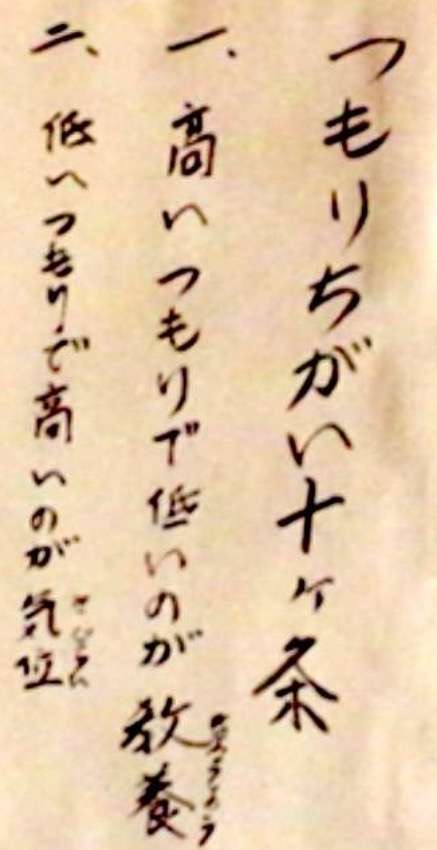 つもりちがい十ヶ条
一、高いつもりで低いのが教養
二、低いつもりで高いのが気位